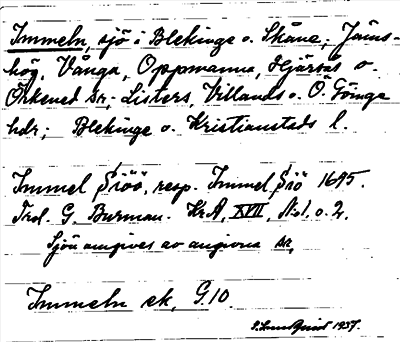 Immeln, sjö i Blekinge o. Skåne; Jäms-
hög, Vånga, Oppmanna, Hjärsås o.
Örkened sr; Listers, Villands o. Ö. Göinge
hdr; Blekinge o. Kristianstads l.
Immel Siöö, resp. Immel Siö 1695.
Trol. G. Burman. KrA, XVII, N:o 1. o. 2.
Sjön omgives av angivna sr.
Immeln ek, G.10
S. Lundquist 1937.